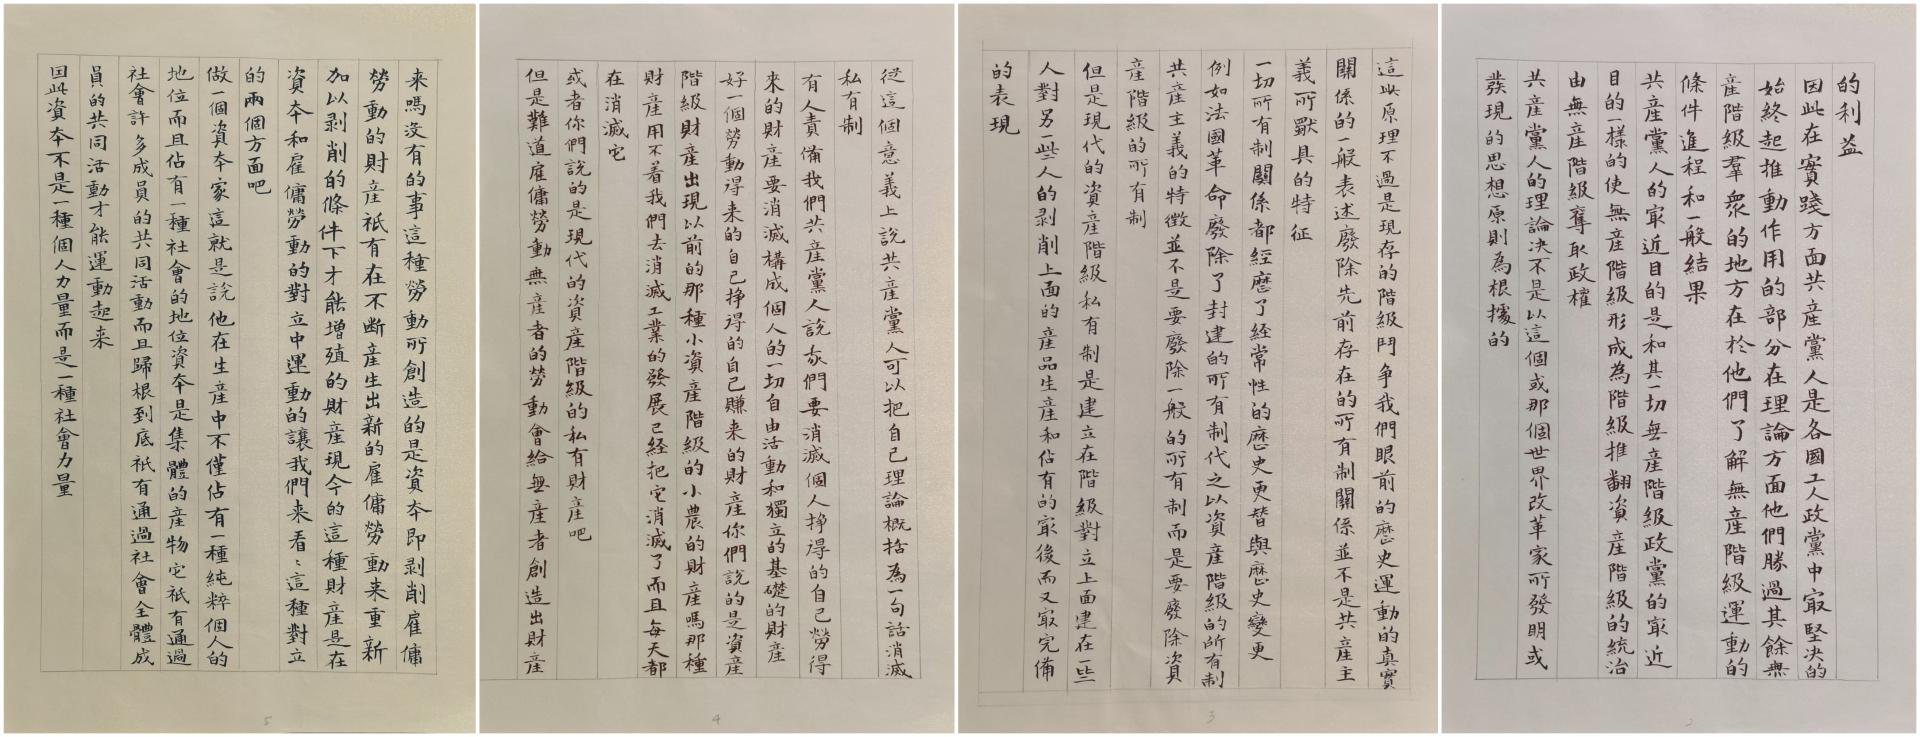 的利益
因此在實踐方面共産黨人是各國工人政黨中冣堅决的
始終起推動作用的部分在理論方面他們勝過其餘無
産階級羣衆的地方在於他們了解無産階級運動的
條件進程和一般結果
共産黨人的冣近目的是和其一切無産階級政黨的冣近
目的一樣的使無産階級形成為階級推翻資産階級的統治
由無産階級奪取政權
共産黨人的理論决不是以這個或那個世界改革家所發明或
發現的思想原則為根據的
2
這些原理不過是現存的階級鬥争我們眼前的歷史運動的真實
關係的一般表述廢除先前存在的所有制關係並不是共産主
義所獸具的特征
一切所有制關係都經歷了經常性的歷史更替與歷史變更
例如法國革命廢除了封建的所有制代之以資産階級的所有制
共産主義的特徵並不是要廢除一般的所有制而是要廢除資
産階級的所有制
但是現代的資産階級私有制是建立在階級對立上面建在一些
人對另一些人的剥削上面的産品生産和佔有的冣後而又冣完備
的表現
3
從這個意義上說共産黨人可以把自己理論概括為一句話消滅
私有制
有人責備我們共産黨人說我們要消滅個人挣得的自己勞得
來的財産要消滅構成個人的一切自由活動和獨立的基礎的財産
好一個勞動得来的自己挣得的自己賺来的財産你們說的是資産
階級財産出現以前的那種小資産階級的小農的財産嗎那種
財産用不着我們去消滅工業的發展已经把它消滅了而且每天都
在消滅它
或者你們說的是現代的資産階級的私有財産吧
但是難道雇傭勞動無産者的勞動會給無産者創造出財産
4
来嗎没有的事這種勞動所創造的是資本即剥削雇傭
勞動的財産祇有在不断産生出新的雇傭勞動来重新
加以剥削的條件下才能增殖的財産現今的這種財産是在
資本和雇傭勞動的對立中運動的讓我們来看〻這種對立
的兩個方面吧
做一個資本家這就是説他在生産中不僅佔有一種純粹個人的
地位而且佔有一種社會的地位資本是集體的産物它祇有通過
社會許多成員的共同活動而且歸根到底祇有通過社會全體成
員的共同活動才能運動起来
因此資本不是一種個人力量而是一種社會力量
5